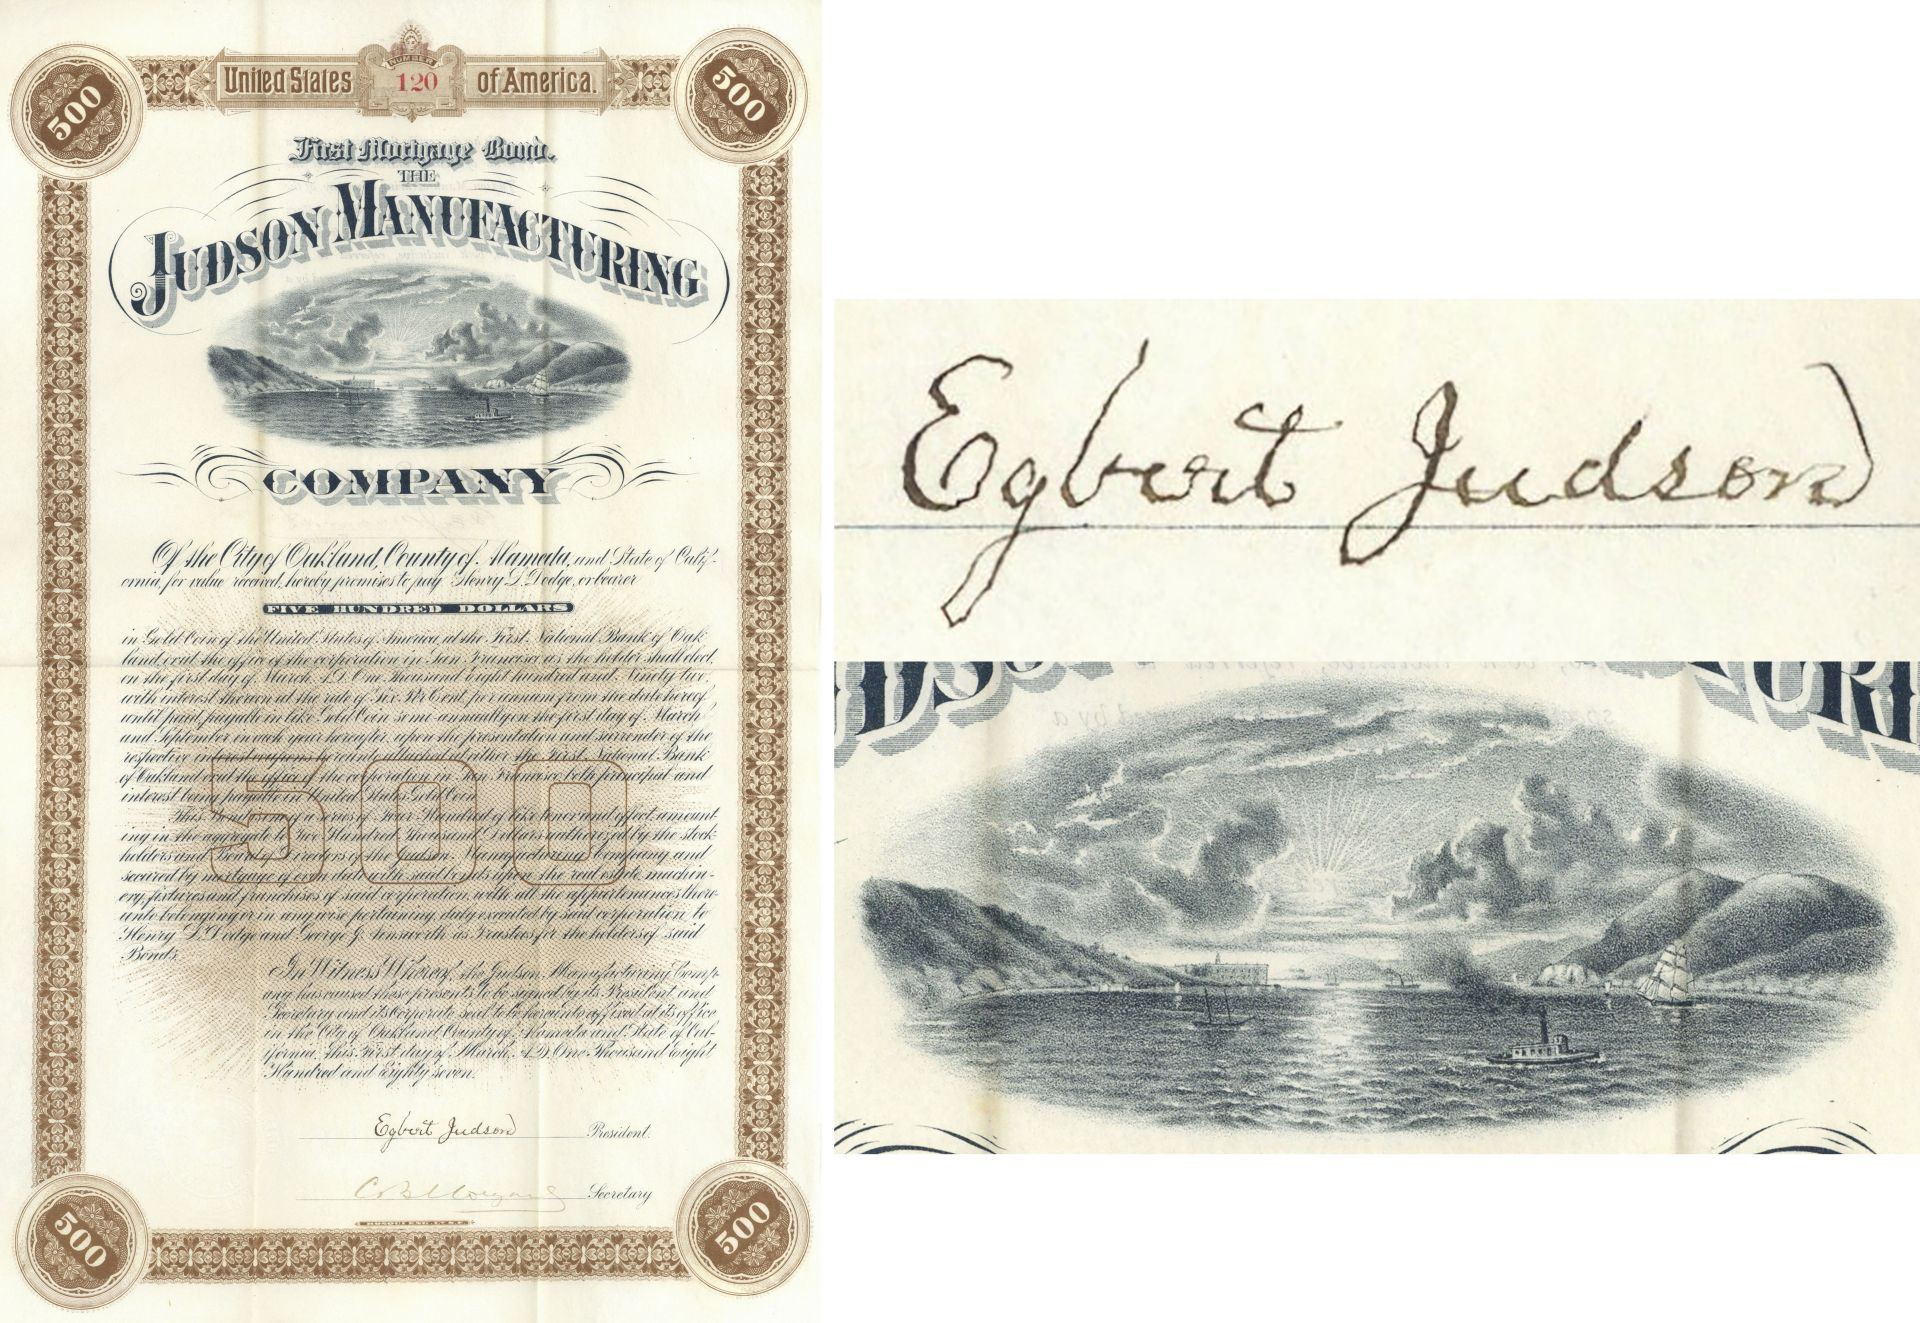 500
United States
NUMBER
120
of America.
500
First Mortgage Bond.
THE
JUDSON MANUFACTURING
COMPANY
Of the City of Oakland, County of Alameda, and State of Calif-
ornia, for value received, hereby promises to pay Henry L. Dodge, or bearer
FIVE HUNDRED DOLLARS
in Gold Coin of the United States of America, at the First National Bank of Oak
land, or at the office of the corporation in San Francisco as the holder shall elect,
on the first day of March, A.D. One Thousand Eight hundred and Ninety two,
with interest thereon at the rate of Six Per Cent. per annum from the date hereof
until paid, payable in like Gold Coin semi-annually on the first day of March
and September in each year hereafter, upon the presentation and surrender of the
respective interest coupons hereunto attached at either the First National Bank
of Oakland or at the office of the corporation in San Francisco both principal and
interest being payable in United States Gold Coin.
500
This Bond is one of a series of Four Hundred of like tenor and effect, amount
ing in the aggregate to Two Hundred Thousand Dollars authorized by the stock-
holders and Board of Directors of the Judson Manufacturing Company, and
secured by mortgage of even date with said bonds upon the real estate, machin-
ery, fixtures and franchises of said corporation, with all the appurtenances there-
unto belonging or in any wise pertaining, duly executed by said corporation to
Henry L. Dodge and George J. Ainsworth as Trustees for the holders of said
Bonds.
In Witness Whereof, the Judson Manufacturing Comp-
any has caused these presents to be signed by its President and
Secretary and its Corporate seal to be hereunto affixed at its office
in the City of Oakland, County of Alameda and State of Cal-
ifornia, this First day of March, A.D. One Thousand Eight
Hundred and Eighty seven.
Egbert Judson President.
Secretary
500
500
Egbert Judson